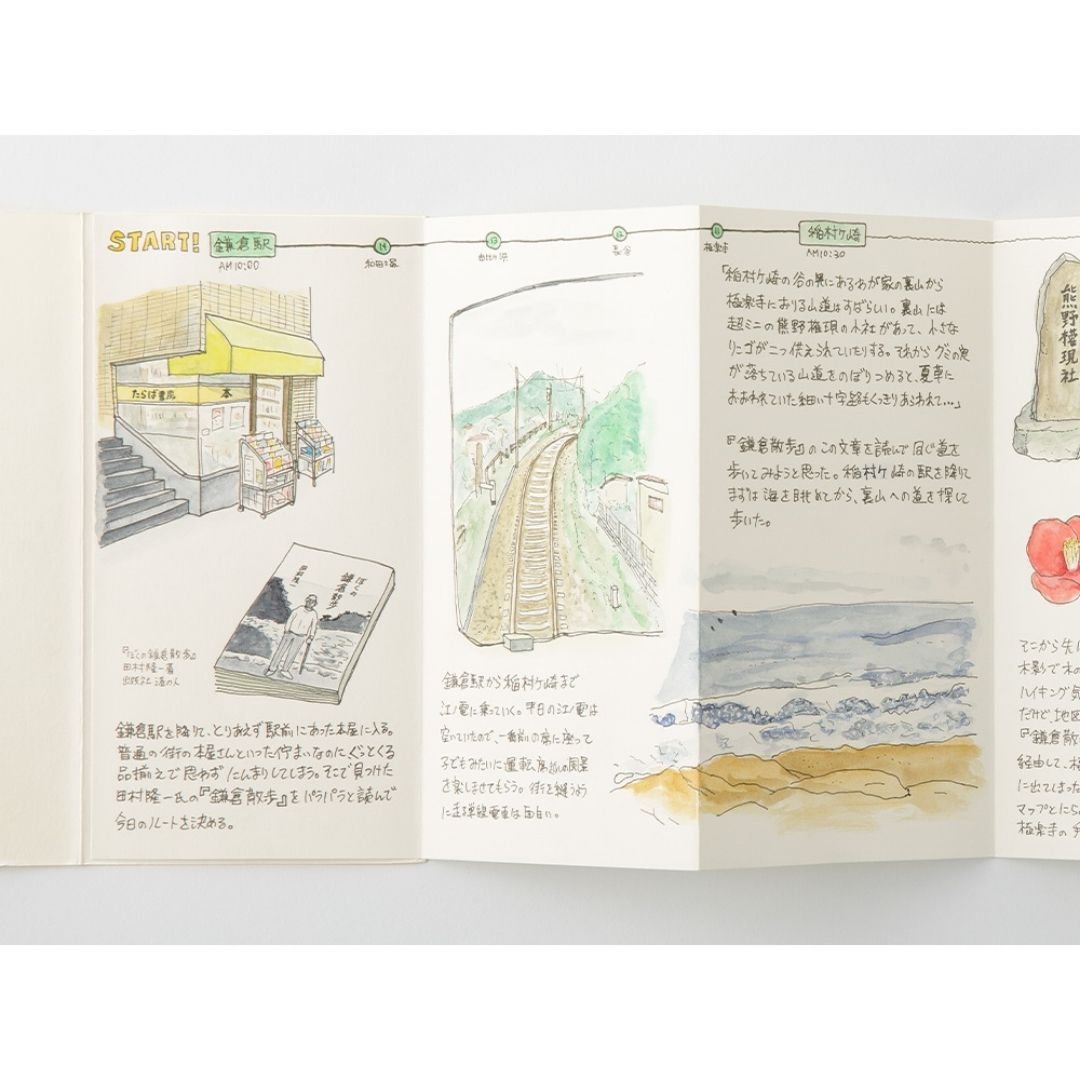 START!
鎌倉駅
AM10:00
14
和田塚
13
由比ヶ浜
12
長谷
11
極楽寺
稲村ケ崎
AM10:30
たらば書房
本
ぼくの
鎌倉散歩
田村隆一
『ぼくの鎌倉散歩』
田村隆一著
出版社 港の人
鎌倉駅を降りて、とりあえず駅前にあった本屋に入る。
普通の街の本屋さんといった佇まいなのにぐっとくる
品揃えで思わずにんまりしてしまう。そこで見つけた
田村隆一氏の『鎌倉散歩』をパラパラと読んで
今日のルートを決める。
鎌倉駅から稲村ケ崎まで
江ノ電に乗っていく。平日の江ノ電は
空いていたので、一番前の席に座って
子どもみたいに運転席越しの風景
を楽しませてもらう。街を縫うよう
に走る単線電車は面白い。
「稲村ケ崎の谷の奥にあるわが家の裏山から
極楽寺におりる山道はすばらしい。裏山には
超ミニの熊野権現の小社があって、小さな
リンゴが二つ供えられていたりする。それからグミの実
が落ちている山道をのぼりつめると、夏草に
おおわれていた細い十字路もくっきりあらわれて…」
『鎌倉散歩』のこの文章を読んで同じ道を
歩いてみようと思った。稲村ケ崎の駅を降りて
まずは海を眺めてから、裏山への道を探して
歩いた。
熊野権現社
そこから先は
木影で木の
ハイキング気
だけど地図
『鎌倉散
経由して、極
に出てしまった
マップとにら
極楽寺の